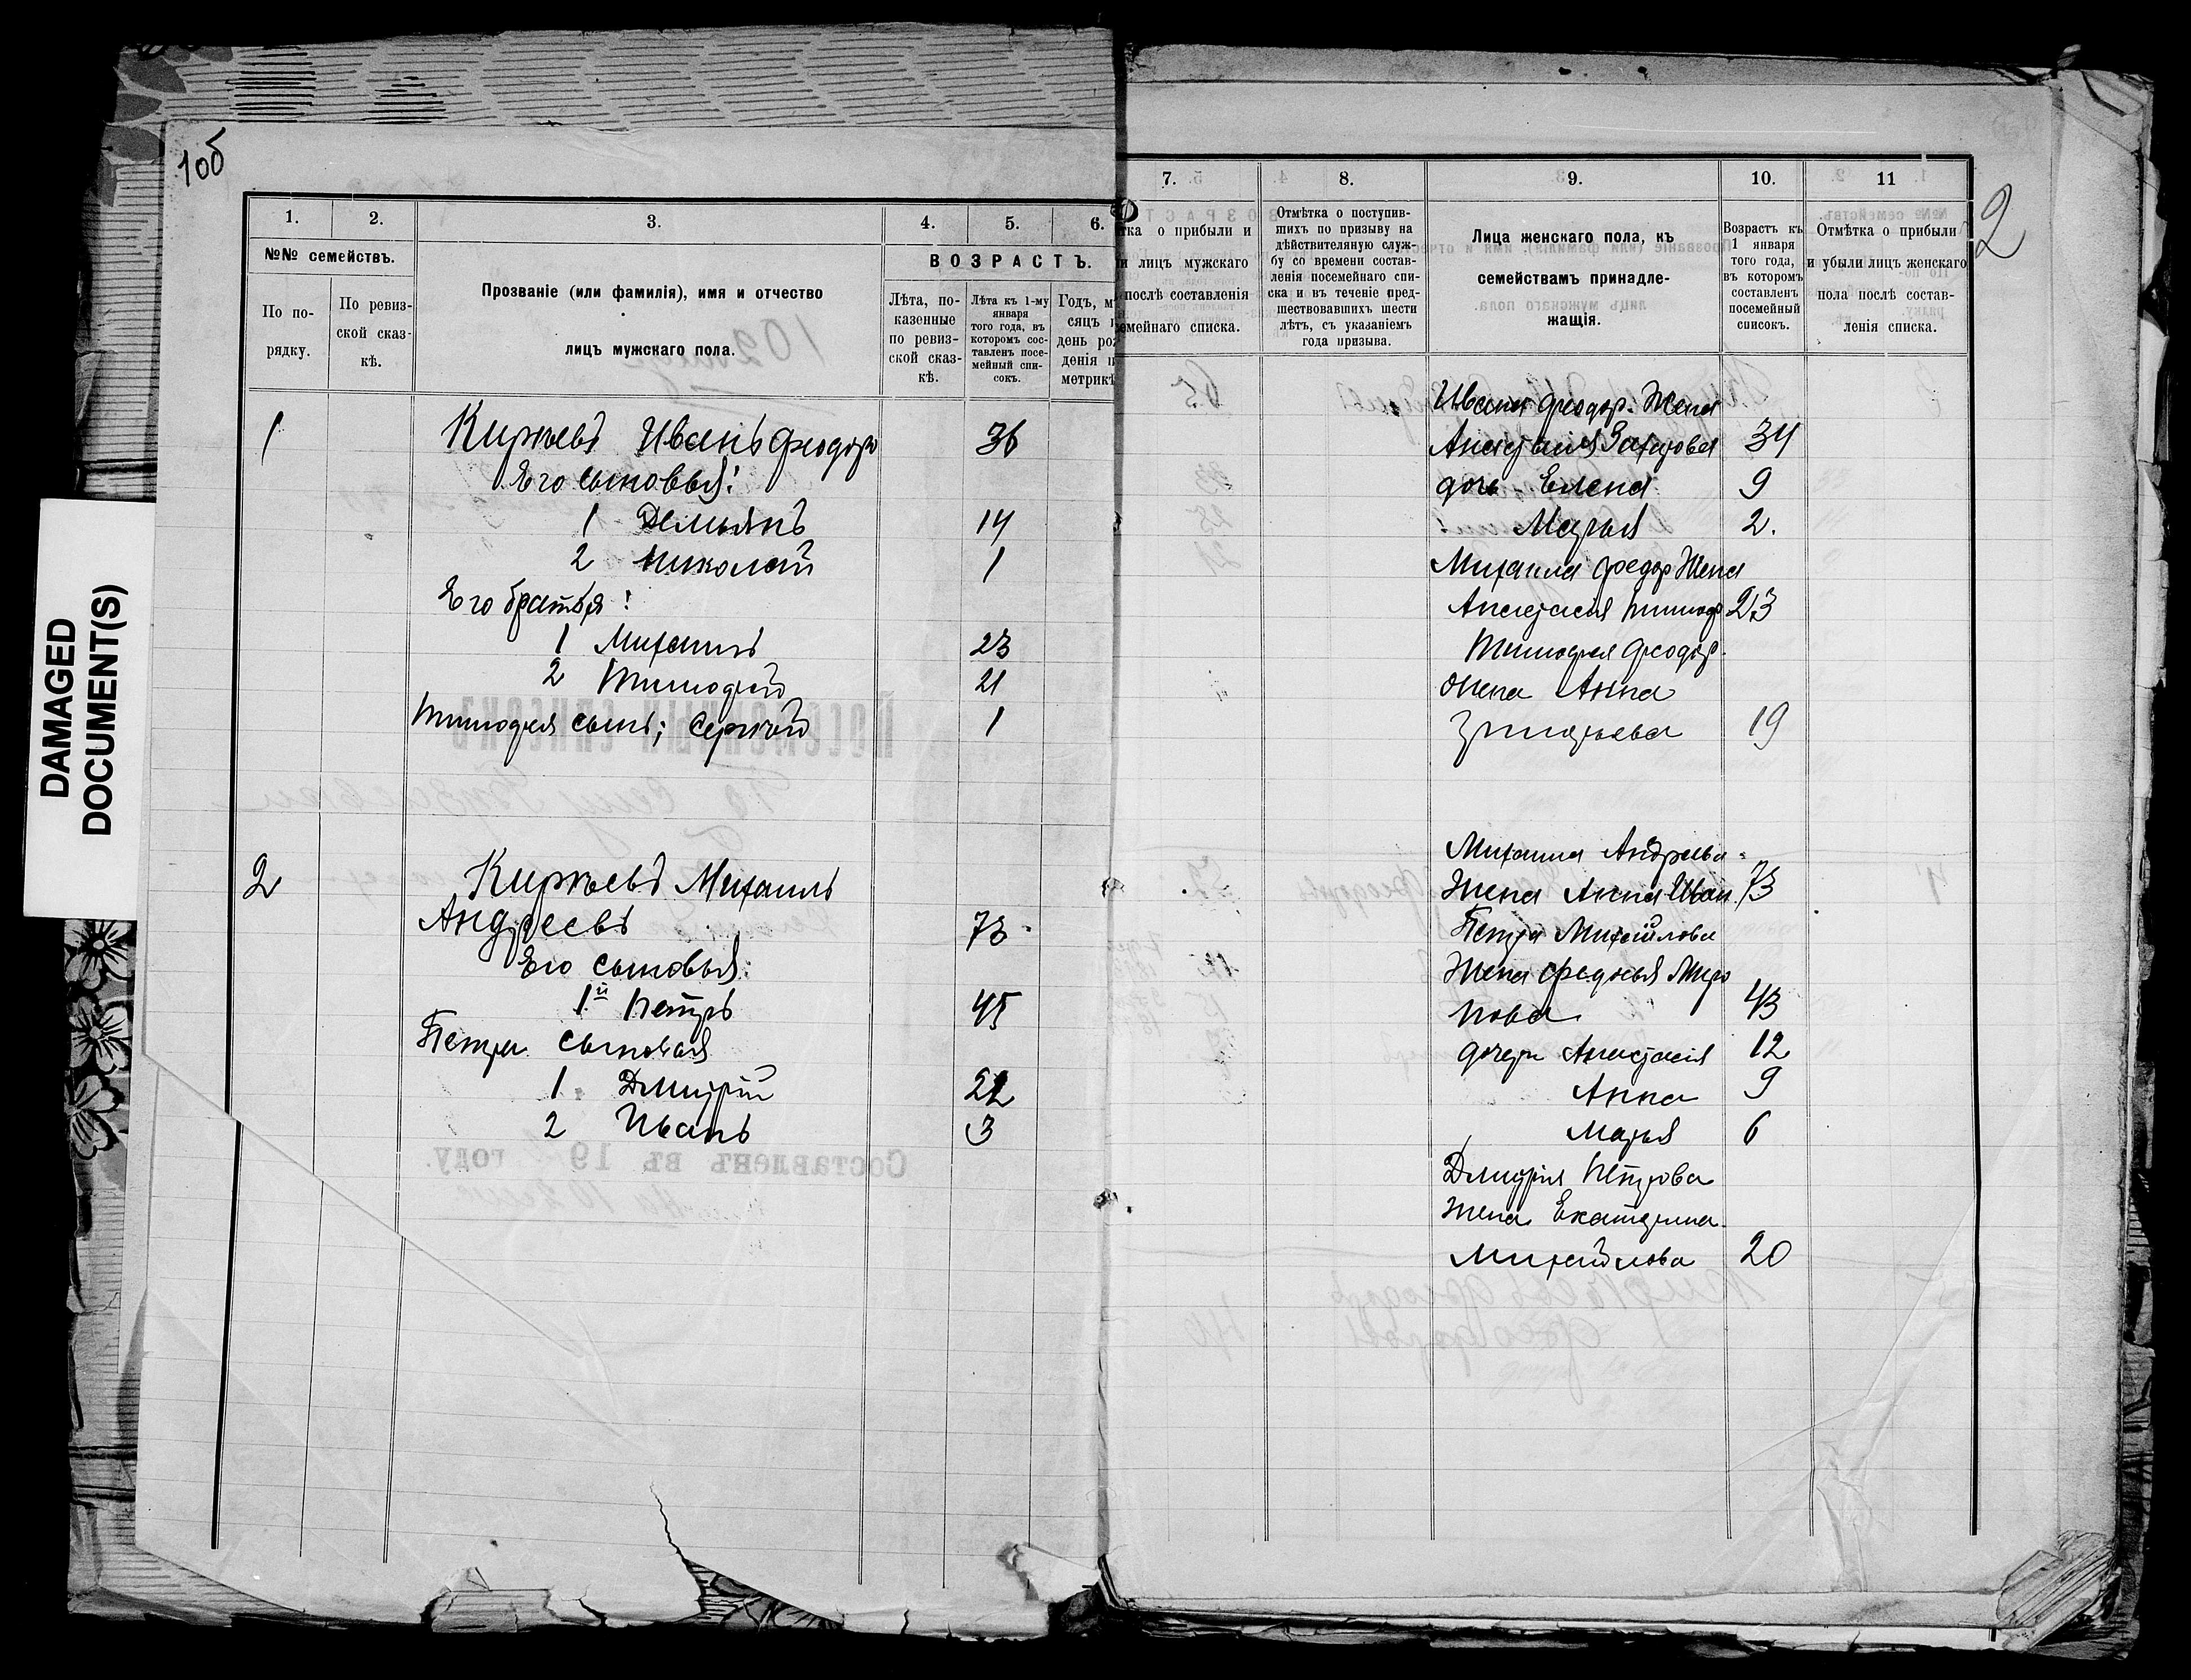 DAMAGED
DOCUMENT(S)
1об
2
1.
2.
3.
4.
5.
6.
№№ семействъ.
По по-
рядку.
По ревиз-
ской сказ-
кѣ.
Прозваніе (или фамилія), имя и отчество
лицъ мужскаго пола.
ВОЗРАСТЪ.
Лѣта, по-
казенные
по ревиз-
ской сказ-
кѣ.
Лѣта къ 1-му
января
того года, въ
которомъ сос-
тавленъ посе-
мейный спи-
сокъ.
Годъ, м
сяцъ
день ро
денія
метрик
1 Киръевъ Иванъ Феодор 36
Его сыновья:
1 Демьянъ 14
2 Николай 1
Его братья:
1 Михаилъ 23
2 Тимофей 21
Тимофея сынъ; Сергѣй 1
2 Киръевъ Михаилъ
Андреевъ 73
Его сыновья:
1й Петръ 45
Петра сыновья
1 Дмитрій 22
2 Иванъ 3
7.
8.
9.
10.
11
тка о прибыли и
и лицъ мужскаго
послѣ составленія
емейнаго списка.
Отмѣтка о поступив-
шихъ по призыву на
дѣйствителяную служ-
бу со времени состав-
ленія посемейнаго спи-
ска и въ теченіе пред-
шествовавшихъ шести
лѣтъ, съ указаніемъ
года призыва.
Лица женскаго пола, къ
семействамъ принадле-
жащія.
Возрастъ къ
1 января
того года,
въ которомъ
составленъ
посемейный
списокъ.
Отмѣтка о прибыли
и убыли лицъ женскаго
пола послѣ состав-
ленія списка.
Ивана Феодор. Жена
Анастасия Захарова 34
дочь - Елена 9
Марья 2.
Михаила Федор Жена
Анастасія Тимоф 23
Тимофея Феодор.
Жена Анна
Григорьева 19
Михаила Андреева
Жена Анна Иван. 73
Петра Михайлова
Жена Федосья Миро
нова 43
дочери Анастасія 12
Анна 9
Марья 6
Дмитрія Петрова
Жена Екатерина
Михайлова 20